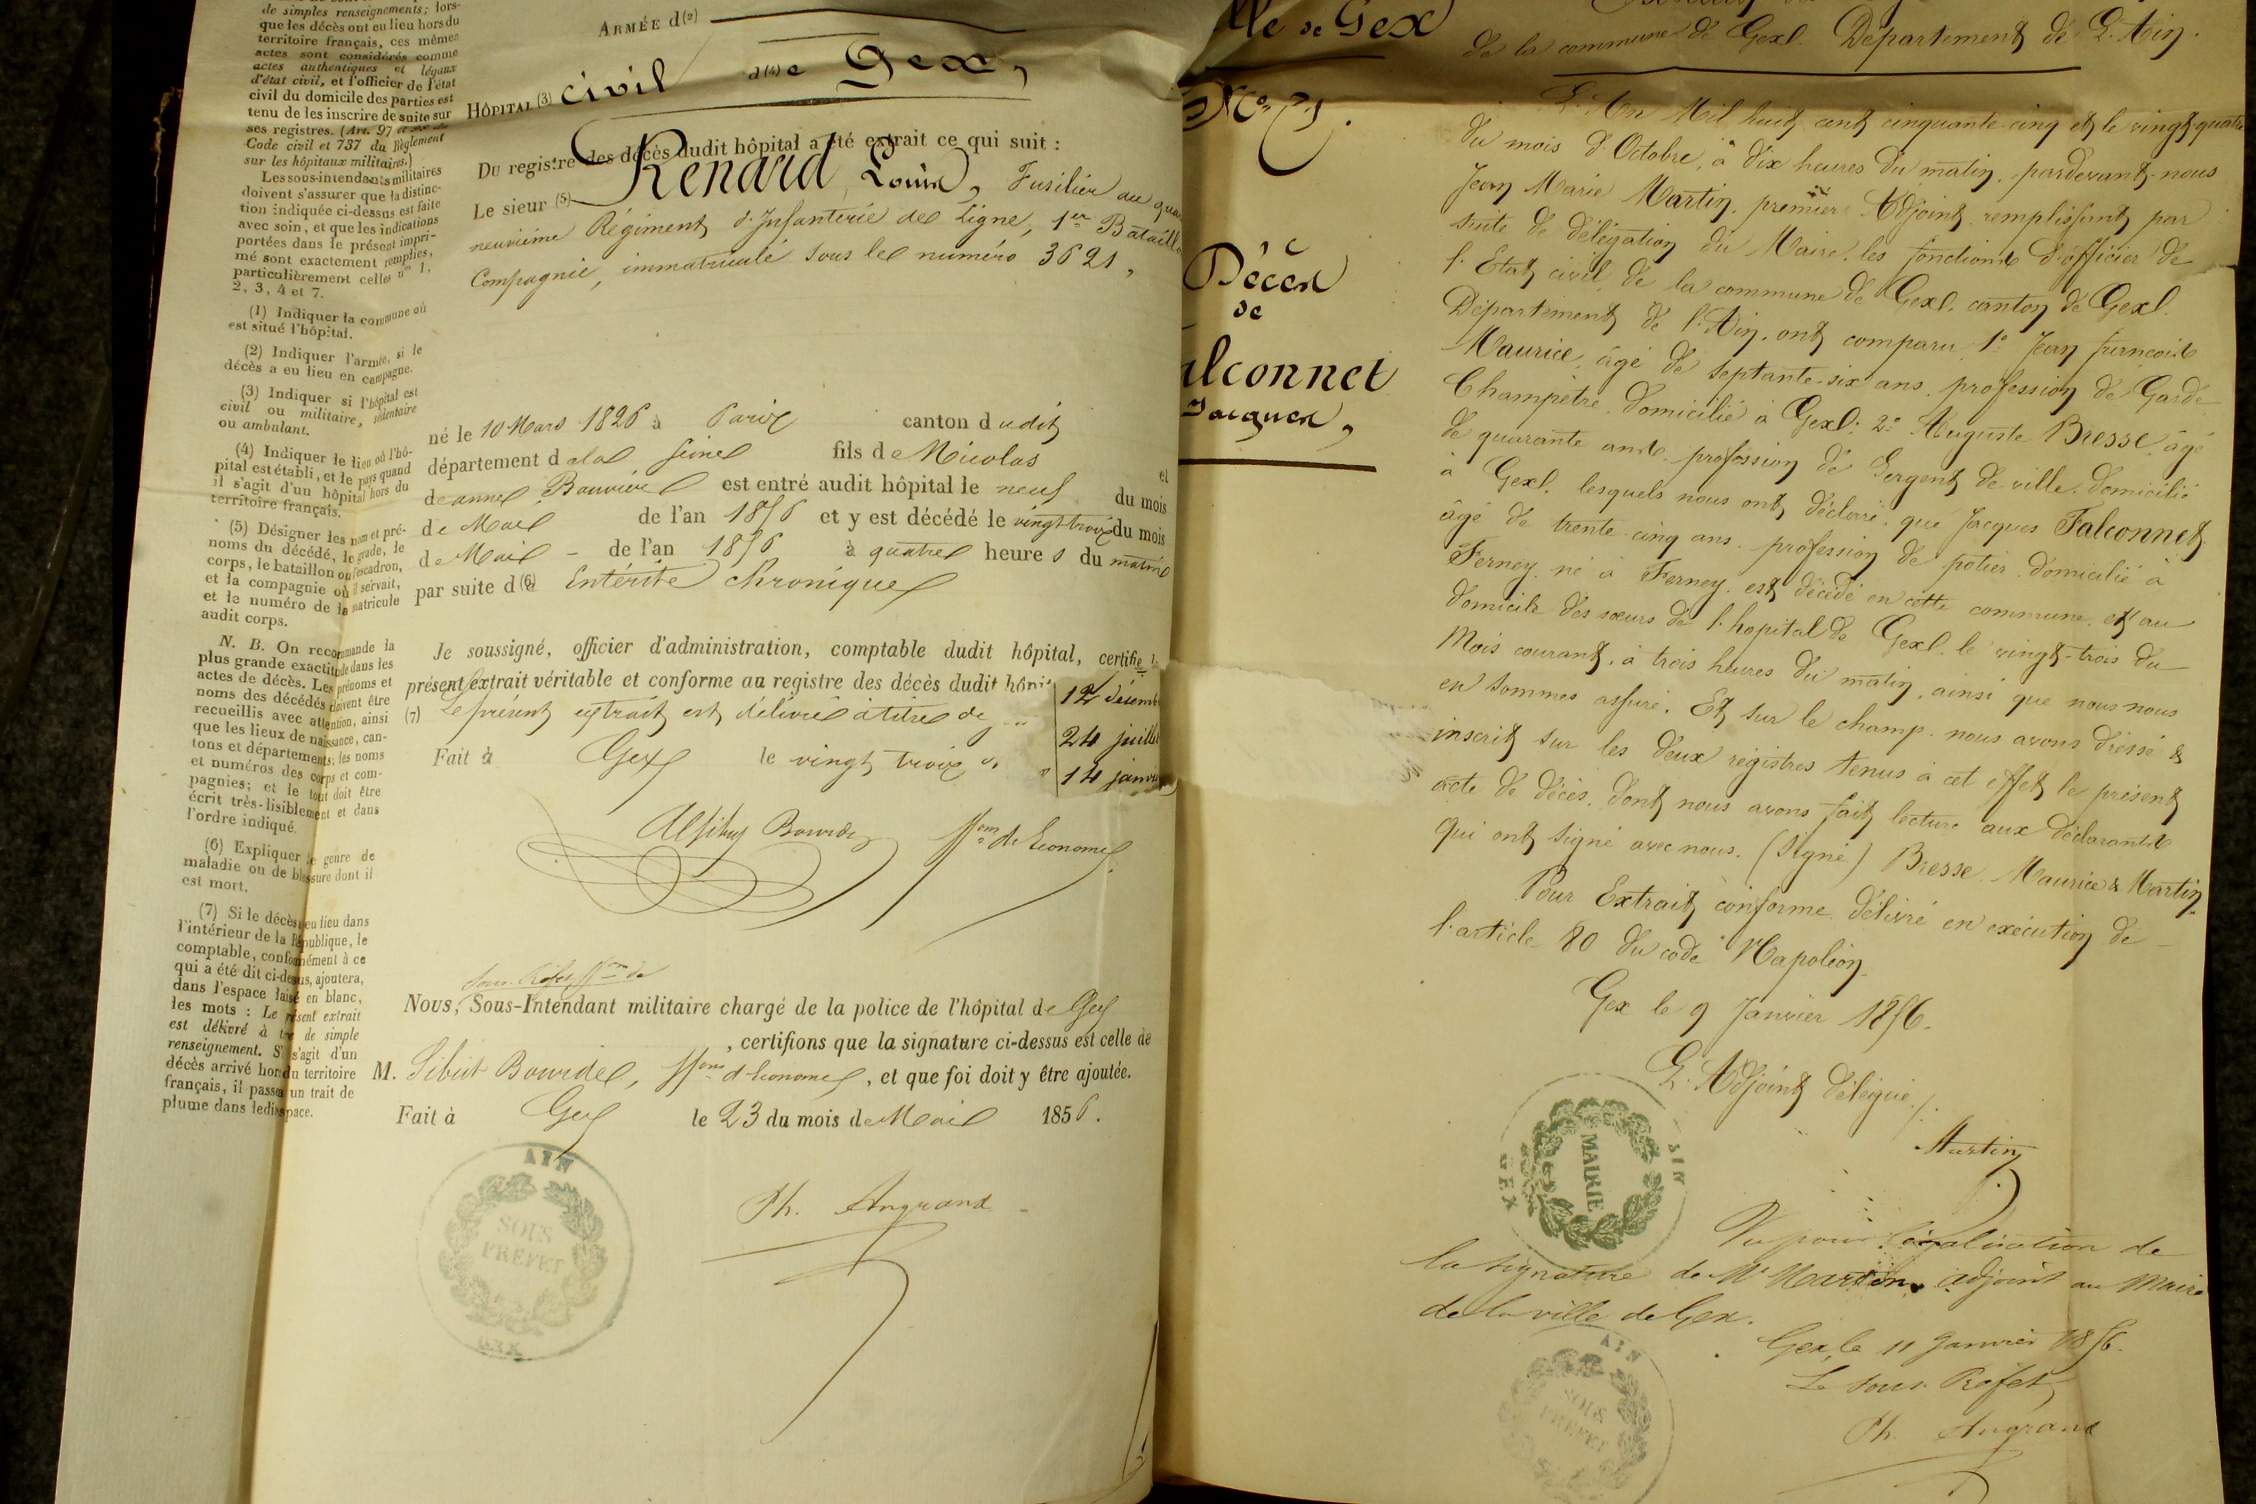 de simples renseignements; lors-
que les décès ont eu lieu hors du
territoire français, ces mêmes
actes sont considérés comme
actes authentiques et légaux
d'état civil, et l'officier de l'état
civil du domicile des parties est
tenu de les inscrire de suite sur
ses registres. (Art. 97 et
Code civil et 737 du Règlement
sur les hôpitaux militaires.)
Les sous-intendants militaires
doivent s'assurer que la distinc-
tion indiquée ci-dessus est faite
avec soin, et que les indications
portées dans le présent impri-
mé sont exactement remplies,
particulièrement celles nos 1,
2, 3, 4 et 7.
(1) Indiquer la commune où
est situé l'hôpital.
(2) Indiquer l'armée, si le
décès a eu lieu en campagne.
(3) Indiquer si l'hôpital est
civil ou militaire, sédentaire
ou ambulant.
(4) Indiquer le lieu où l'hô-
pital est établi, et le pays quand
il s'agit d'un hôpital hors du
territoire français.
(5) Désigner les nom et pré-
noms du décédé, le grade, le
corps, le bataillon ou l'escadron,
et la compagnie où il servait,
et le numéro de la matricule
audit corps.
N. B. On recommande la
plus grande exactitude dans les
actes de décès. Les prénoms et
noms des décédés doivent être
recueillis avec attention, ainsi
que les lieux de naissance, can-
tons et départements; les noms
et numéros des corps et com-
pagnies; et le tout doit être
écrit très-lisiblement et dans
l'ordre indiqué.
(6) Expliquer le genre de
maladie ou de blessure dont il
est mort.
(7) Si le décès a eu lieu dans
l'intérieur de la République, le
comptable, conformément à ce
qui a été dit ci-dessus, ajoutera,
dans l'espace laissé en blanc,
les mots : Le présent extrait
est délivré à titre de simple
renseignement. S'il s'agit d'un
décès arrivé hors du territoire
français, il passera un trait de
plume dans ledit espace.
ARMÉE d(2)
HÔPITAL (3) civil d(4)e Gex,
Du registre des décès dudit hôpital a été extrait ce qui suit :
Le sieur (5) Renard Louis, Fusilier au qua
neuvième Régiment d'Infanterie de Ligne, 1er Bataillo
Compagnie, immatriculé sous le numéro 3621,
né le 10 Mars 1826 à Paris canton dudit
département de la Seine fils de Nicolas et
de anne Bouvier est entré audit hôpital le neuf du mois
de Mai de l'an 1856 et y est décédé le vingt trois du mois
de Mai de l'an 1856 à quatre heures du matin
par suite d(6)e Entérite chronique
Je soussigné, officier d'administration, comptable dudit hôpital, certifie le
présent extrait véritable et conforme au registre des décès dudit hôpi
(7) Le présent extrait est délivré à titre de
Fait à Gex le vingt trois
12 décemb
24 juillet
14 janvier
ffon de L'économe
Sous-Préfet ffon de
Nous, Sous-Intendant militaire chargé de la police de l'hôpital de Gex
, certifions que la signature ci-dessus est celle de
M. Sibut Bourde, ffon d'économe, et que foi doit y être ajoutée.
Fait à Gex le 23 du mois de Mai 1856.
AIN
SOUS
PRÉFET
GEX
Ph. Angrand
lle de Gex
No
Décès
de
alconnet
Jacques,
de la commune de Gex. Département de L'Ain.
L'An Mil huit cent cinquante-cinq et le vingt-quatre
du mois d'Octobre, à dix heures du matin, pardevant nous
Jean Marie Martin, premier Adjoint remplissant par
suite de délégation du Maire, les fonctions d'officier de
l'Etat civil de la commune de Gex, canton de Gex,
Département de l'Ain, ont comparu 1° Jean francois
Maurice, âgé de septante-six ans, profession de Garde
Champêtre, domicilié à Gex; 2° Auguste Bresse, âgé
de quarante ans, profession de Sergent de ville, domicilié
à Gex, lesquels nous ont déclaré, que Jacques Falconnet
âgé de trente-cinq ans, profession de potier, domicilié à
Ferney, né à Ferney, est décédé en cette commune, et au
domicile des sœurs de l'hopital de Gex, le vingt-trois du
Mois courant, à trois heures du matin, ainsi que nous nous
en sommes assuré. Et sur le champ nous avons dressé &
inscrit sur les deux régistres tenus à cet effet le présent
acte de décès, dont nous avons fait lecture aux déclarants
qui ont signé avec nous. (Signé) Bresse, Maurice & Martin.
Pour Extrait conforme, délivré en exécution de
l'article 80 du code Napoléon.
Gex le 9 Janvier 1856.
L'Adjoint délégué,
Martin
AIN
MAIRIE
GEX
Vu pour légalisation de
la signature de Mr Martin, adjoint au Maire
de la ville de Gex.
Gex, le 11 Janvier 1856.
Le sous-Préfet
Ph. Angrand
AIN
SOUS
PRÉFET